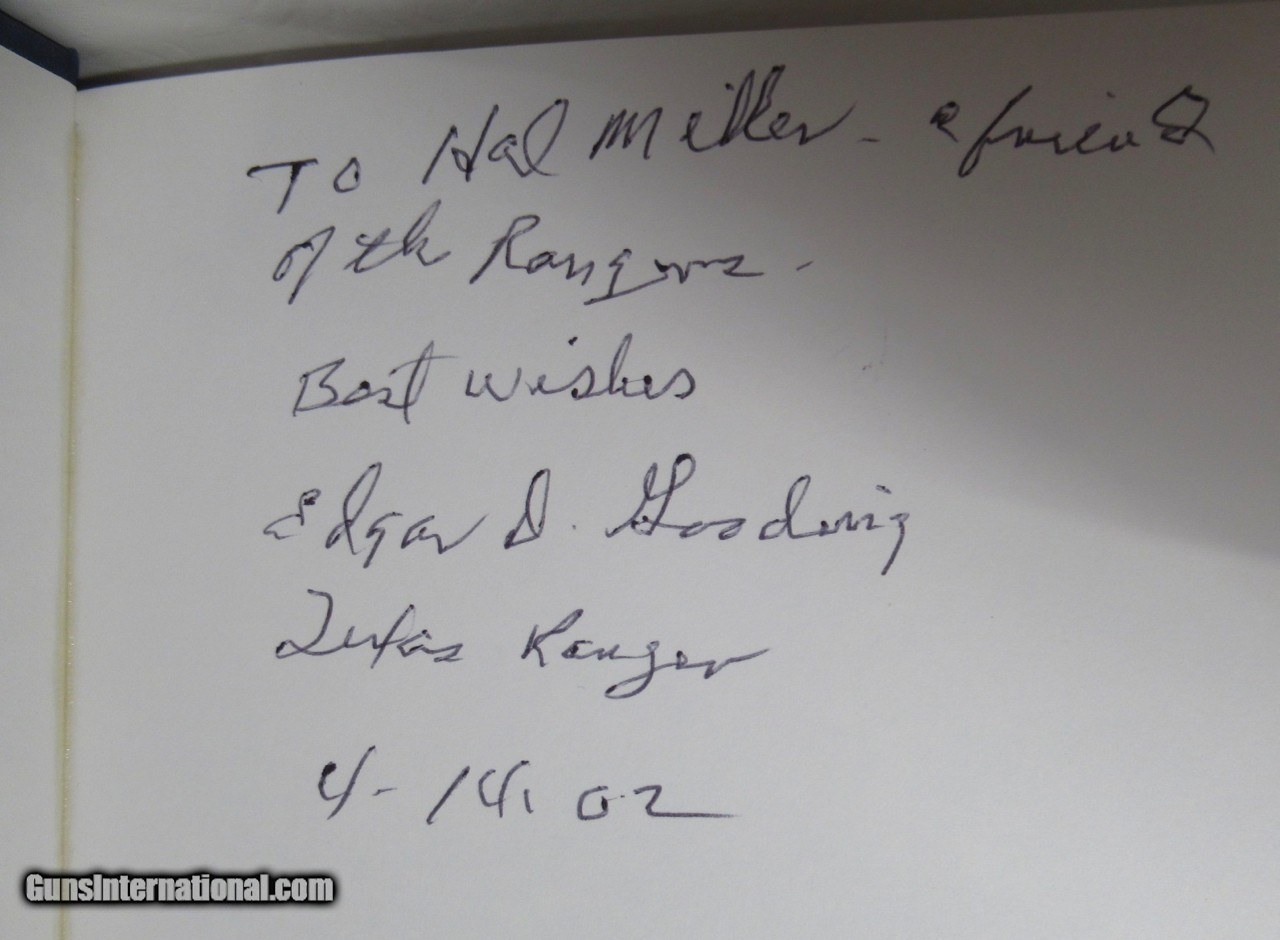 To Hal Miller - a friend
of the Rangers -
Best Wishes
Edgar D. Gooding
Texas Ranger
4-14-02
GunsInternational.com